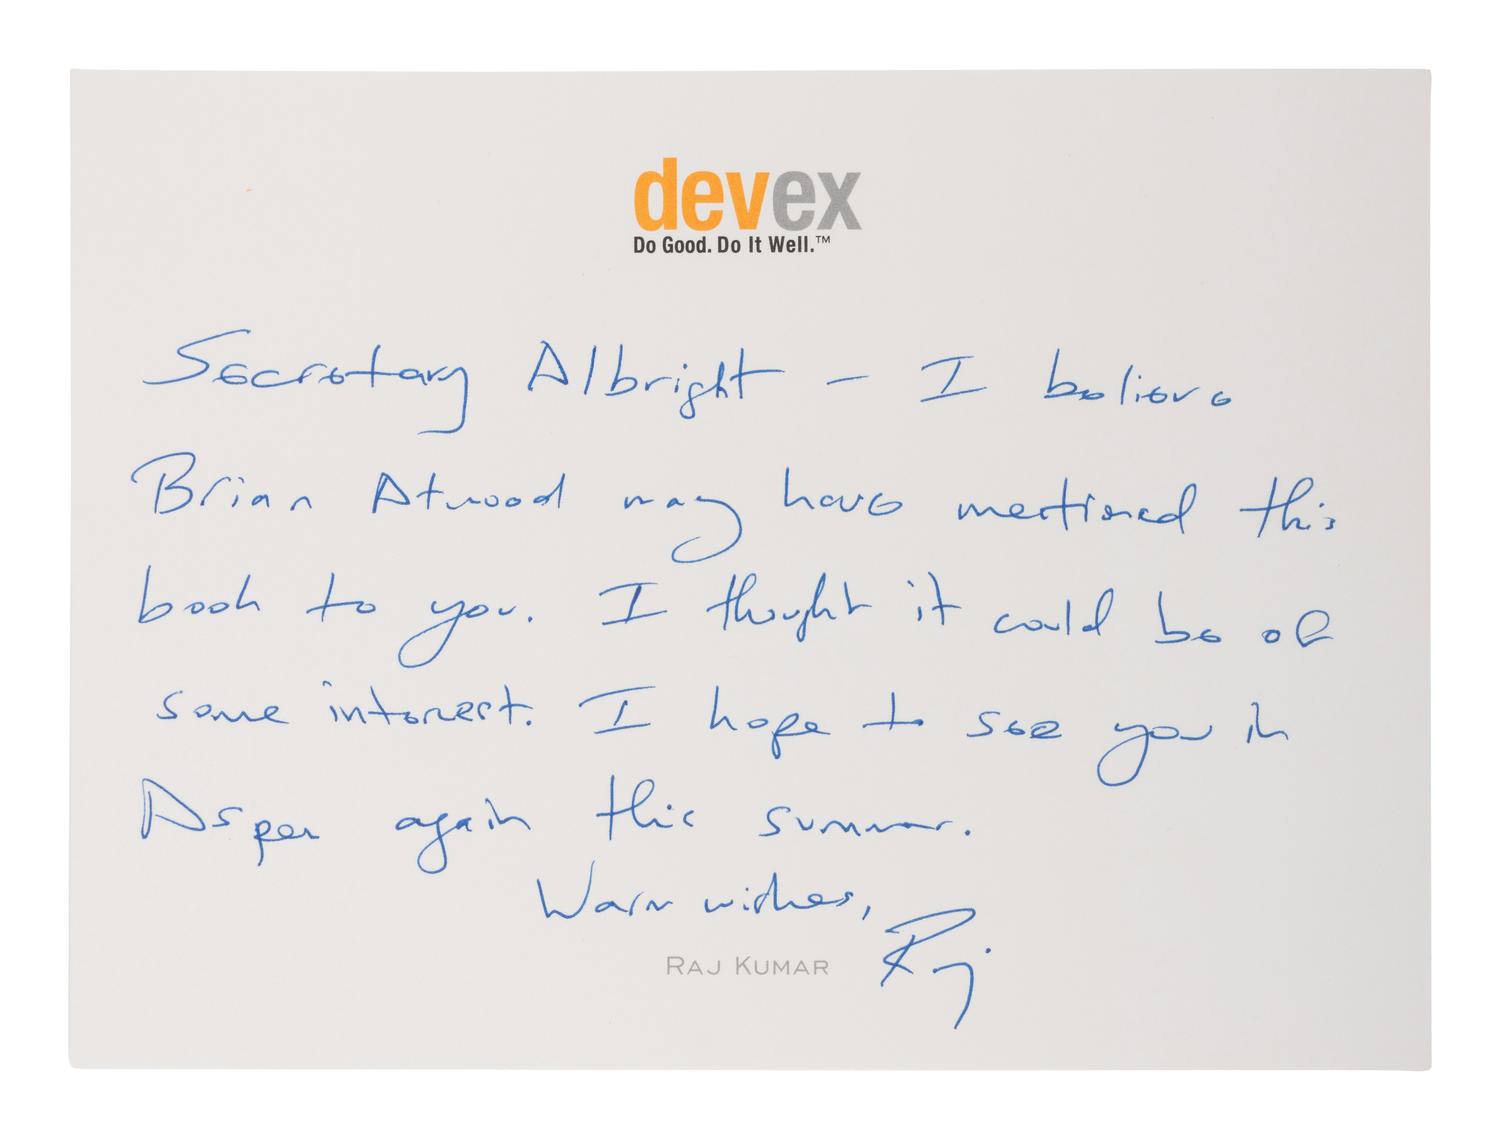 devex
Do Good. Do It Well.™
Secretary Albright – I believe
Brian Atwood may have mentioned this
book to you. I thought it could be of
some interest. I hope to see you in
Aspen again this summer.
Warm wishes,
Raj
RAJ KUMAR